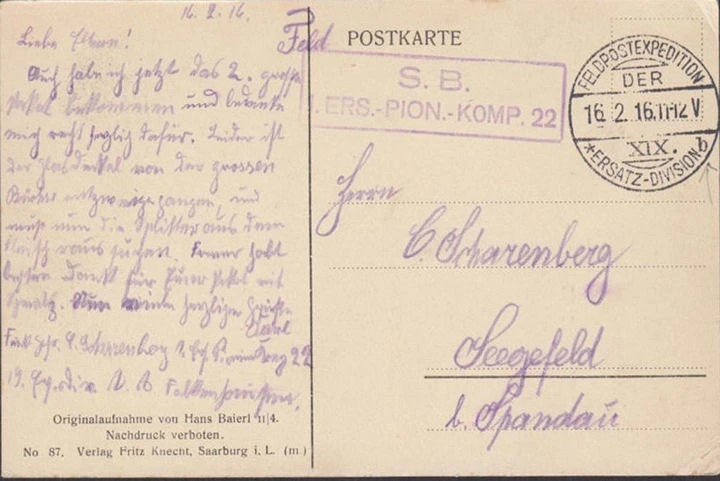 16.2.16.
Liebe Eltern!
Auch habe ich jetzt das 2. grosse
Paket bekommen und bedanke
mich recht herzlich dafür. Leider ist
der Glasdeckel von der grossen
entzweigegangen, und
muss nun die Splitter aus dem
Fleisch raus suchen. Ferner habt
besten Dank für Euer Paket mit
Schmalz. Nun viele herzliche Grüsse
Carl
C. Scharenberg 1. Ers. Komp 22
19. Ers. Div. Falkenhausen.
Originalaufnahme von Hans Baierl 11|4.
Nachdruck verboten.
No 87. Verlag Fritz Knecht, Saarburg i. L. (m)
Feld POSTKARTE
S. B.
1. ERS.-PION.-KOMP. 22
FELDPOSTEXPEDITION
DER
16.2.16.11-12V
XIX.
*ERSATZ-DIVISION b
Herrn
C. Scharenberg
Seegefeld
b. Spandau